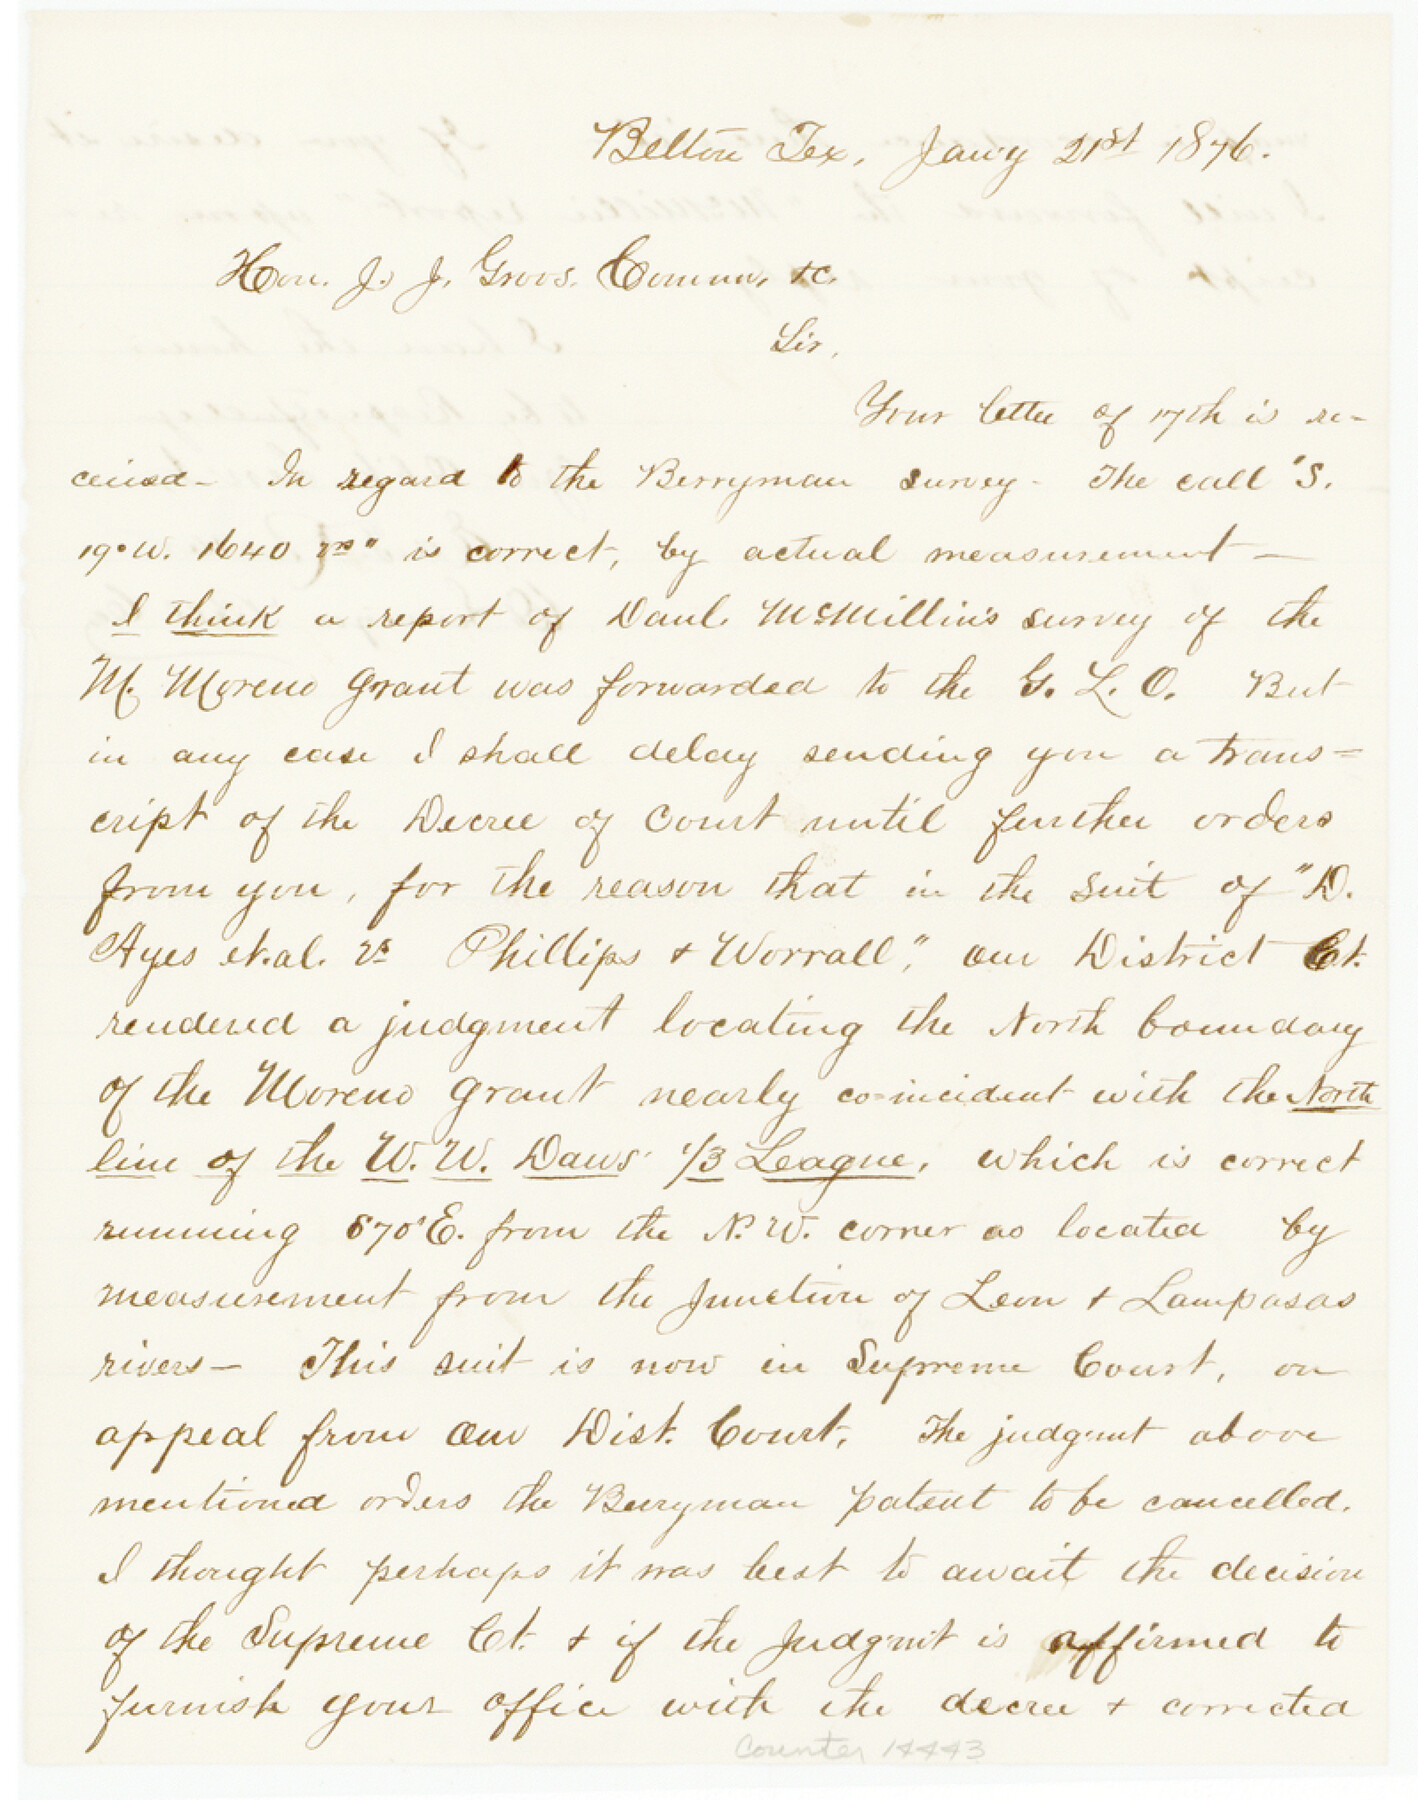 Belton Tex, Jan'y 21st 1876.
Hon. J. J. Groos. Commr, &c.
Sir,
Your letter of 17th is re-
ceived - In regard to the Berryman survey - The call "S.
19° W. 1640 vrs" is correct, by actual measurement -
I think a report of Danl. McMillin's survey of the
M. Moreno Grant was forwarded to the G. L. O. But
in any case I shall delay sending you a trans=
cript of the Decree of Court until further orders
from you, for the reason that in the suit of "D.
Ayes et.al. vs Phillips & Worrall," our District Ct.
rendered a judgment locating the North boundary
of the Moreno Grant nearly co-incident with the North
line of the W. W. Daws' 1/3 League, which is correct
running S70°E. from the N.W. corner as located by
measurement from the Junction of Leon & Lampasas
rivers - This suit is now in Supreme Court, on
appeal from our Dist. Court. The judg'mt above
mentioned orders the Berryman patent to be cancelled.
I thought perhaps it was best to await the decision
of the Supreme Ct. & if the Judg'mt is affirmed to
furnish your office with the decree & corrected
counter 14443